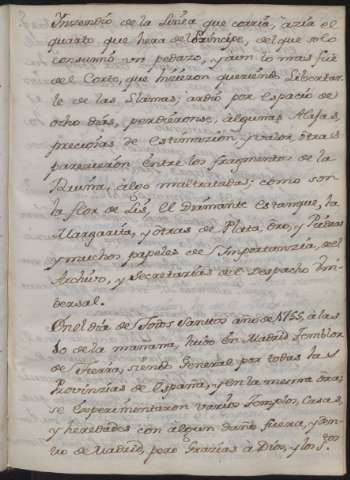 Inzendio de la Linea que corria, azia el
quarto que hera del Principe, del que solo
consumió un pedazo, y aun lo mas fue
del Corto, que hizieron queriendo Libertar-
le de las Llamas; ardió por espacio de
ocho dias, perdieronse, algunas Alajas,
preciosas de Estimazion, y valor, otras
parezieron entre los fragmentos de la
Ruina, algo maltratadas; como son
la flor de Lis, el Diamante estanque, la
Margarita, y otras de Plata, Oro, y Piedras
y muchos papeles de Importanzia, del
Archivo, y Secretarias del Despacho Uni-
bersal.
En el dia de Todos Santtos año de 1755, a las
10 de la mañana, huvo en Madrid Temblor
de Tierra, siendo General por todas las
Provinzias de España, y en la misma ora,
se experimentaron varios Templos, Casas,
y heredades con algun daño fuera, y den-
tro de Madrid, pero Grazias à Dios, y los